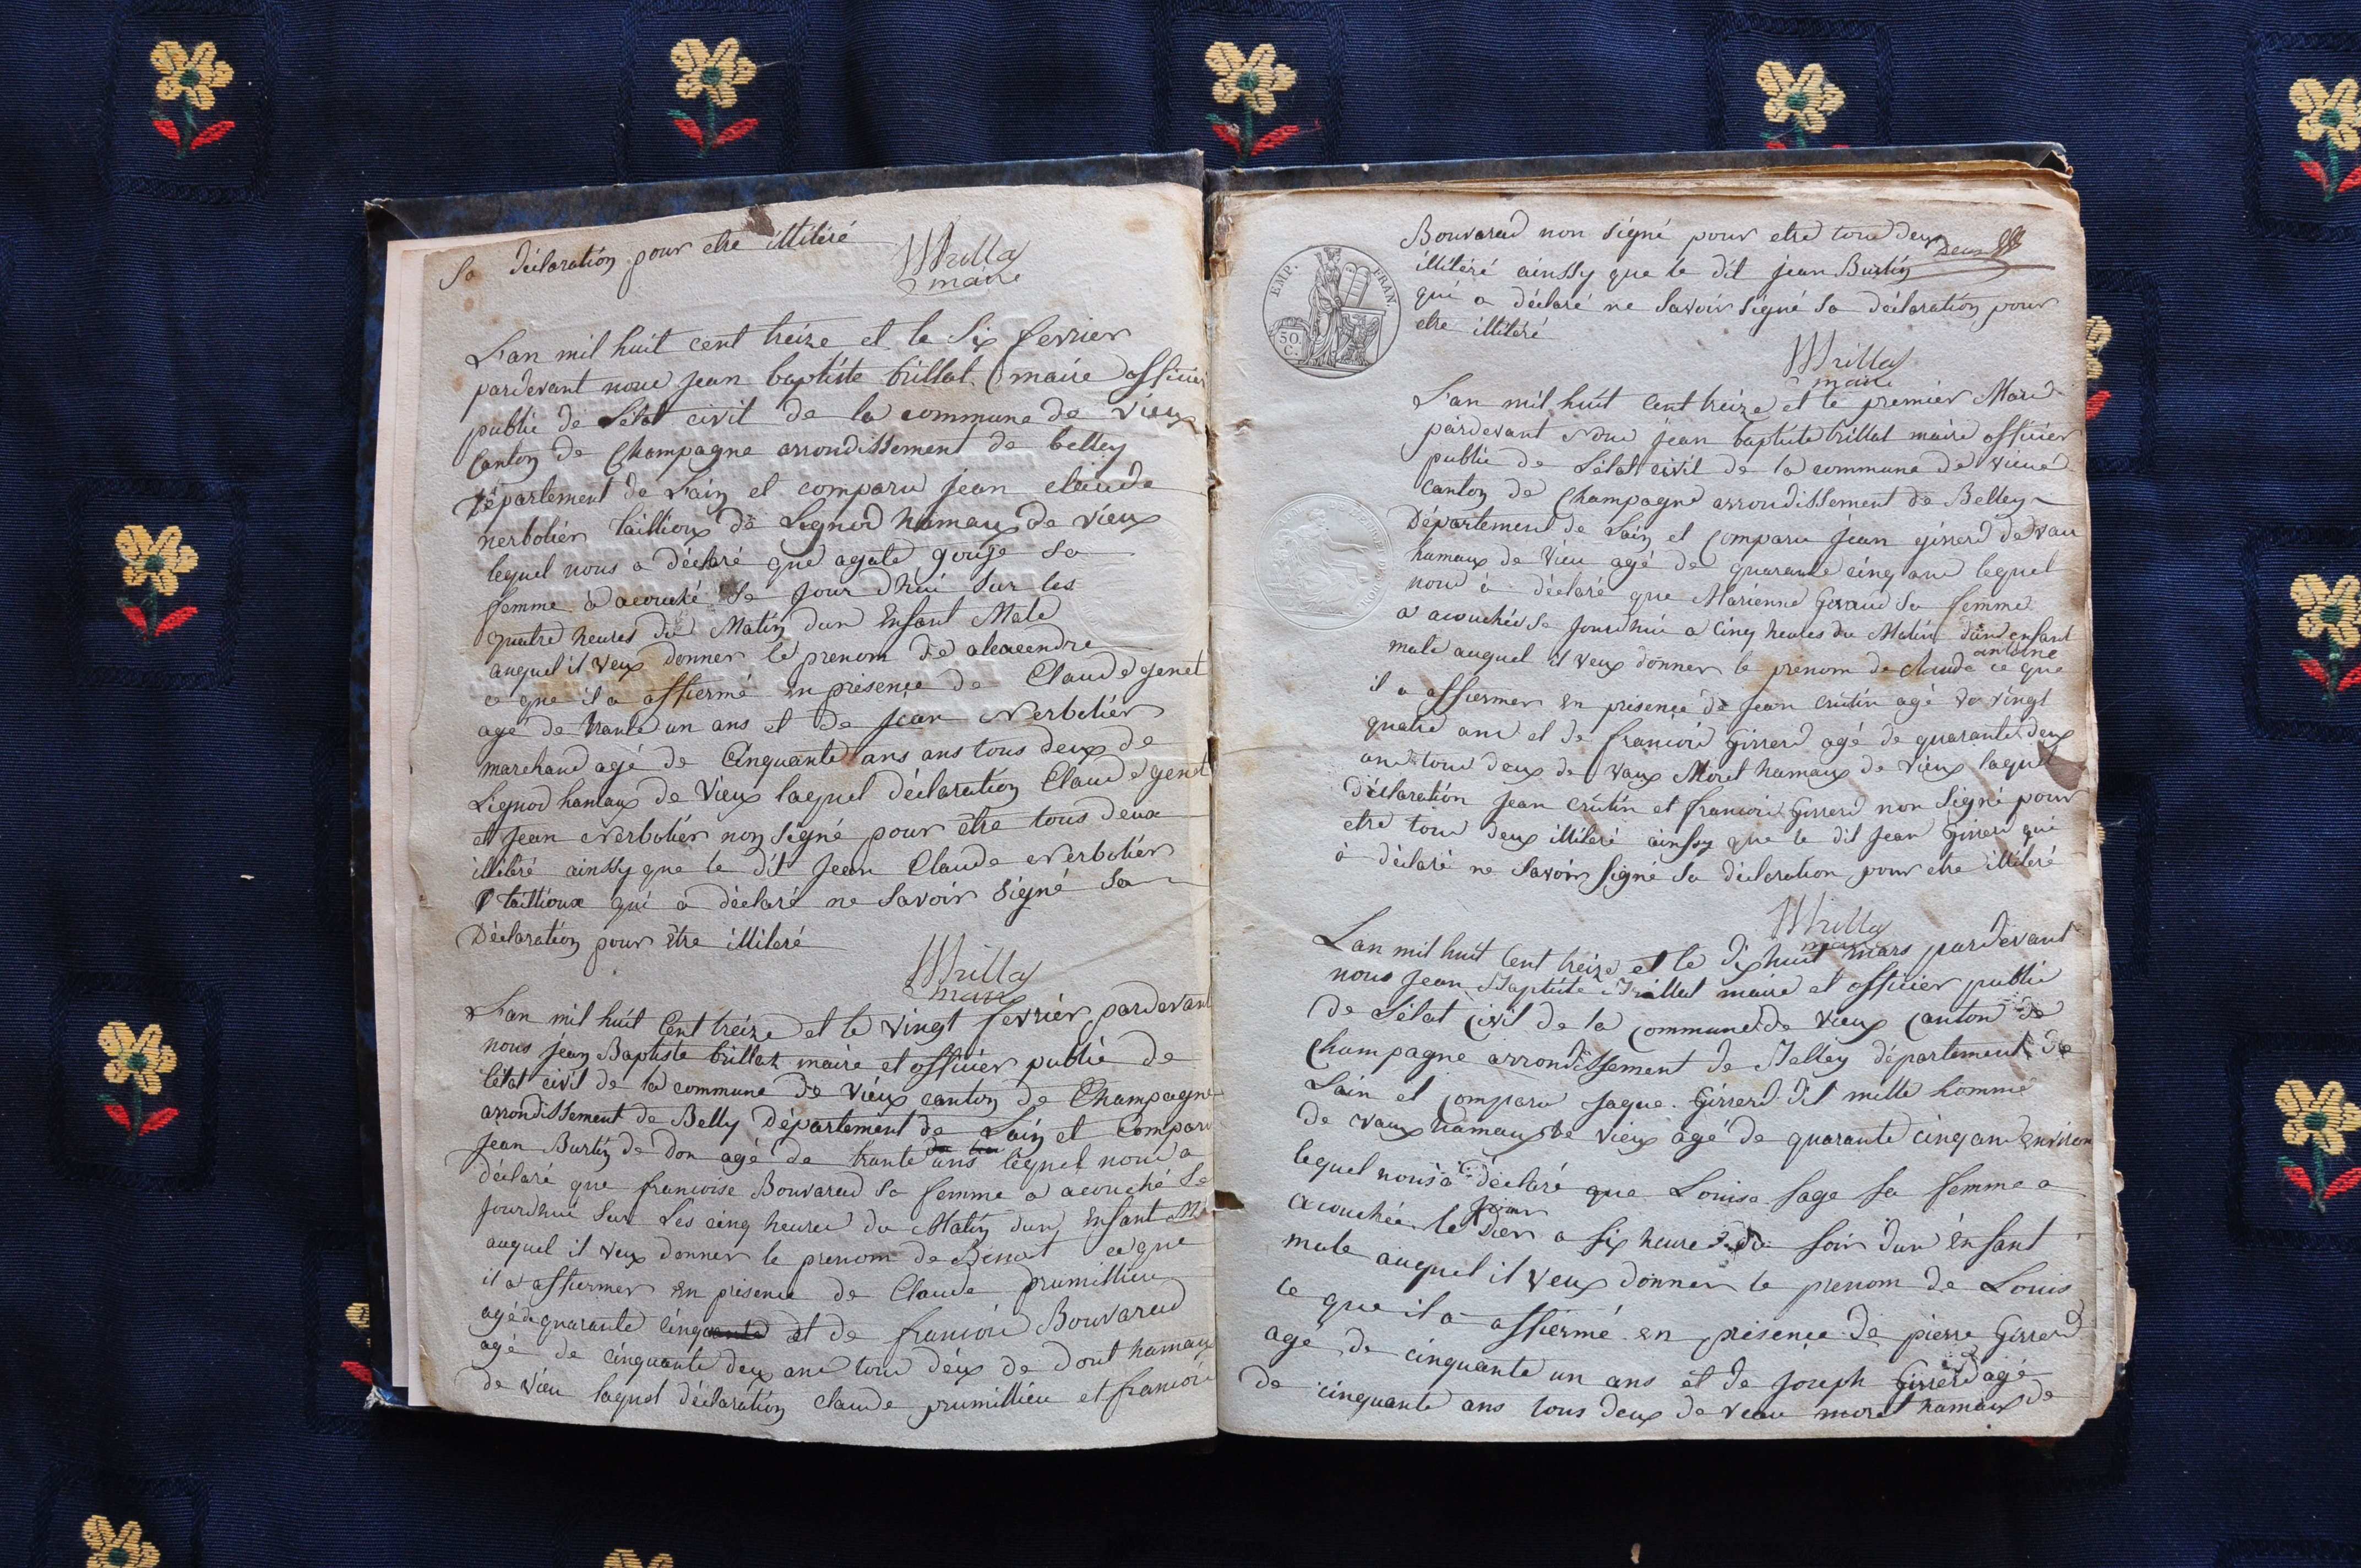 sa déclaration pour etre illiteré
Brillat
maire
L'an mil huit cent treize et le six fevrier
pardevant nous jean baptiste brillat maire officier
public de l'état civil de la commune de vieux
canton de Champagne arrondissement de belley
Département de L'ain et comparu jean claude
nerbolier taillioux de Lignod hamaux de vieux
lequel nous a déclaré que agate gouje sa
femme a acouché se jour dhui sur les
quatre heures du Matin dun Enfant Male
auquel il veux donner le prenom de
ce que il a affiermé en présence de Claude genet
agé de trante un ans et de jean Nerbolier
marchand agé de Cinquante ans ans tous deux de
Lignod hamaux de Vieux laquel déclaration Claude genet
et jean Nerbolier non signé pour être tous deux
illiteré ainssy que le dit jean Claude Nerbolier
taillioux qui a déclaré ne savoir signé sa
Déclaration pour être illiteré
Brillat
maire
L'an mil huit Cent treize et le vingt fevrier pardevant
nous jean Baptiste brillat maire et officier public de
l'état civil de la commune de vieux canton de Champagne
arrondissement de Belly Département de Lain et Comparu
jean Burtin de don agé de trante ans lequel nous a
déclaré que francoise Bouvard sa femme a acouché se
jourdhui sur Les cinq heures du Matin dun Enfant
auquel il veux donner le prenom de Benoit ce que
il a affiermer en présence de Claude prumillieu
agé de quarante cinq et de francois Bouvard
agé de cinquante deux ans tous deux de dont hamaux
de vieu laquel déclaration claude prumillieu et francois
Bouvard non signé pour etre tous deux
Deux
illiteré ainssy que le dit jean Burtin
qui a déclaré ne savoir signé sa déclaration pour
etre illiteré
EMP. FRAN.
50 C.
Brillat
maire
L'an mil huit cent treize et le premier Mars
pardevant nous jean baptiste brillat maire officier
public de l'état civil de la commune de vieux
canton de Champagne arrondissement de Belley
Département de Lain et comparu jean girrerd de vaux
hamaux de vieu agé de quarante cinq ans lequel
nous à déclaré que Marienne sa femme
a acouchée se jourdhui a cinq heures du Matin dun enfant
antoine
male auquel il veux donner le prenom de Claude ce que
il a affiermer en présence de jean crutin agé de vingt
quatre ans et de francois Girrerd agé de quarante deux
ans tous deux de vaux Moret hamaux de vieux laquel
déclaration jean crutin et francois Girrerd non signé pour
etre tous deux illiteré ainssy que le dit jean Girrerd qui
à déclaré ne savoir signé sa déclaration pour etre illiteré
Brillat
maire
Lan mil huit cent treize et le dixhuit mars pardevant
nous jean Baptiste Brillat maire et officier public
de l'état civil de la commune de vieux canton de
Champagne arrondissement de Belley département de
Lain et comparu jaque Girrerd dit mille homme
de vaux hamaux de vieux agé de quarante cinq ans environ
lequel nous a déclaré que Louise sage sa femme a
jour
acouchée le a six heures du soir dun énfant
male auquel il veux donner le prenom de Louis
ce que il a affiermé en présence de pierre Girrerd
agé de cinquante un ans et de joseph Girrerd agé
de cinquante ans tous deux de veau moret hamaux de